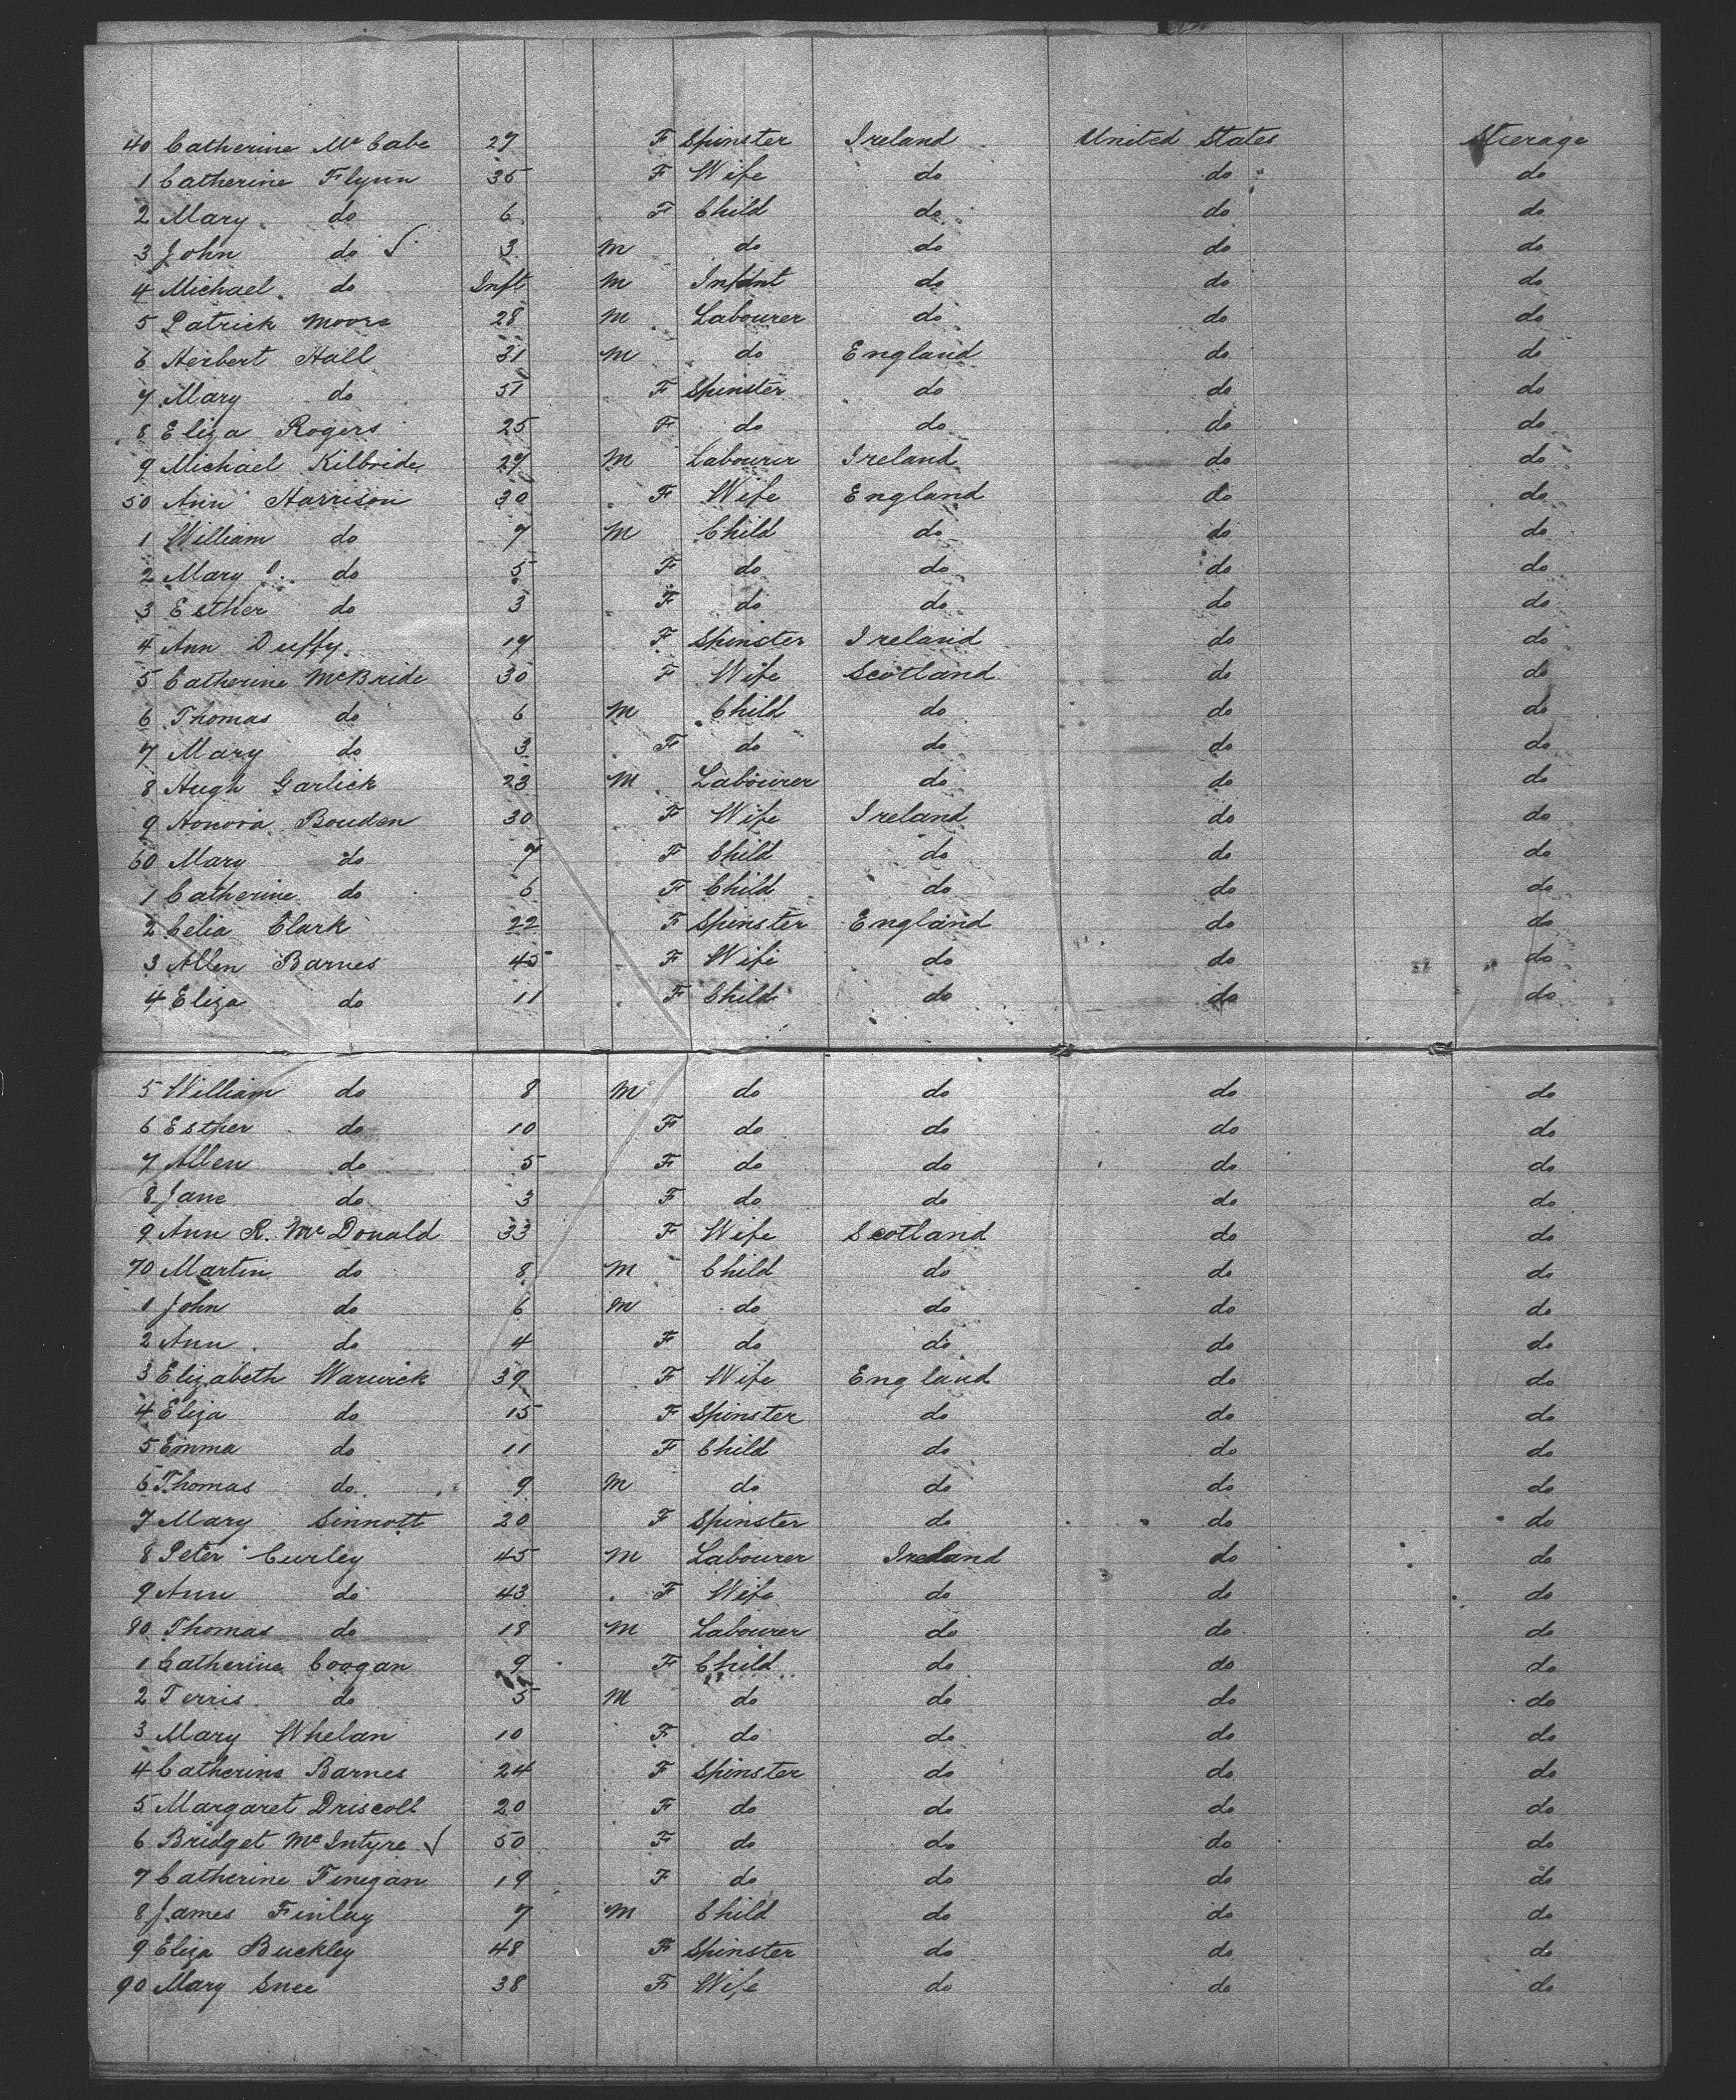 40 Catherine McCabe 27 F Spinster Ireland United States Steerage
1 Catherine Flynn 35 F Wife do do do
2 Mary do 6 F Child do do do
3 John do √ 3 M do do do do
4 Michael do Inft M Infant do do do
5 Patrick Moore 28 M Labourer do do do
6 Herbert Hall 31 M do England do do
7 Mary do 51 F Spinster do do do
8 Eliza Rogers 25 F do do do do
9 Michael Kilbride 27 M Labourer Ireland do do
50 Ann Harrison 30 F Wife England do do
1 William do 7 M Child do do do
2 Mary do 5 F do do do do
3 Esther do 3 F do do do do
4 Ann Duffy 17 F Spinster Ireland do do
5 Catherine McBride 30 F Wife Scotland do do
6 Thomas do 6 M Child do do do
7 Mary do 3 F do do do do
8 Hugh Garlick 23 M Labourer do do do
9 Honora Bouden 30 F Wife Ireland do do
60 Mary do 7 F Child do do do
1 Catherine do 6 F Child do do do
2 Celia Clark 22 F Spinster England do do
3 Allen Barnes 45 F Wife do do do
4 Eliza do 11 F Child do do do
5 William do 8 M do do do do
6 Esther do 10 F do do do do
7 Allen do 5 F do do do do
8 Jane do 3 F do do do do
9 Ann R. McDonald 33 F Wife Scotland do do
70 Martin do 8 M Child do do do
1 John do 6 M do do do do
2 Ann do 4 F do do do do
3 Elizabeth Warwick 39 F Wife England do do
4 Eliza do 15 F Spinster do do do
5 Emma do 11 F Child do do do
6 Thomas do 9 M do do do do
7 Mary Sinnott 20 F Spinster do do do
8 Peter Curley 45 M Labourer Ireland do do
9 Ann do 43 F Wife do do do
80 Thomas do 18 M Labourer do do do
1 Catherine Coogan 9 F Child do do do
2 Terris do 5 M do do do do
3 Mary Whelan 10 F do do do do
4 Catherine Barnes 24 F Spinster do do do
5 Margaret Driscoll 20 F do do do do
6 Bridget McIntyre √ 50 F do do do do
7 Catherine Finegan 19 F do do do do
8 James Finlay 7 M Child do do do
9 Eliza Buckley 48 F Spinster do do do
90 Mary Snee 38 F Wife do do do